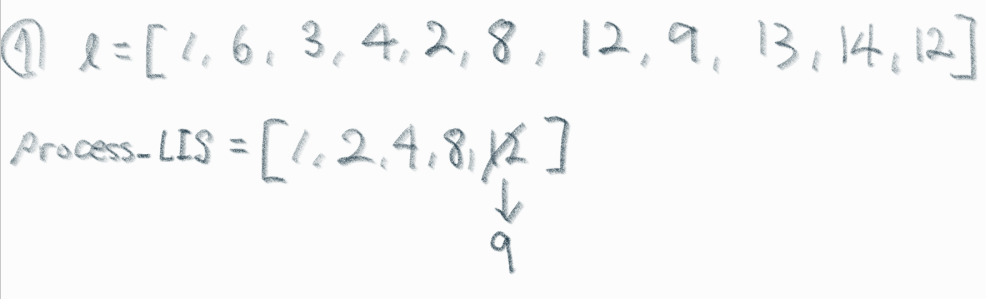 ① l = [ 1, 6, 3, 4, 2, 8, 12, 9, 13, 14, 12 ]
process_LIS = [ 1, 2, 4, 8, 12 ]
↓
9